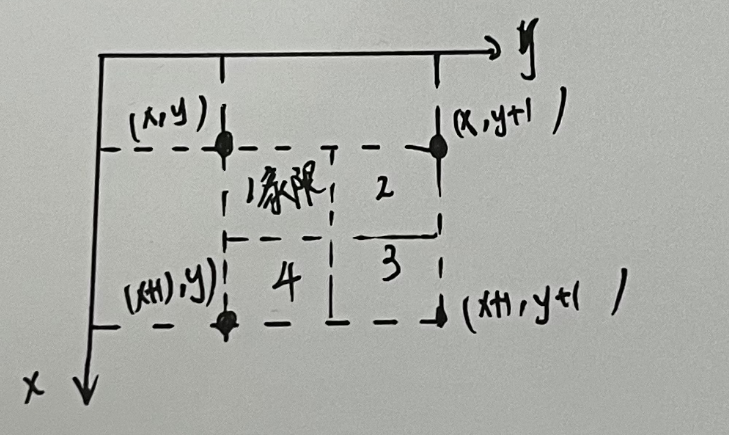 y
(x,y) (x,y+1)
1象限 2
(x+1),y) 4 3
(x+1,y+1)
x